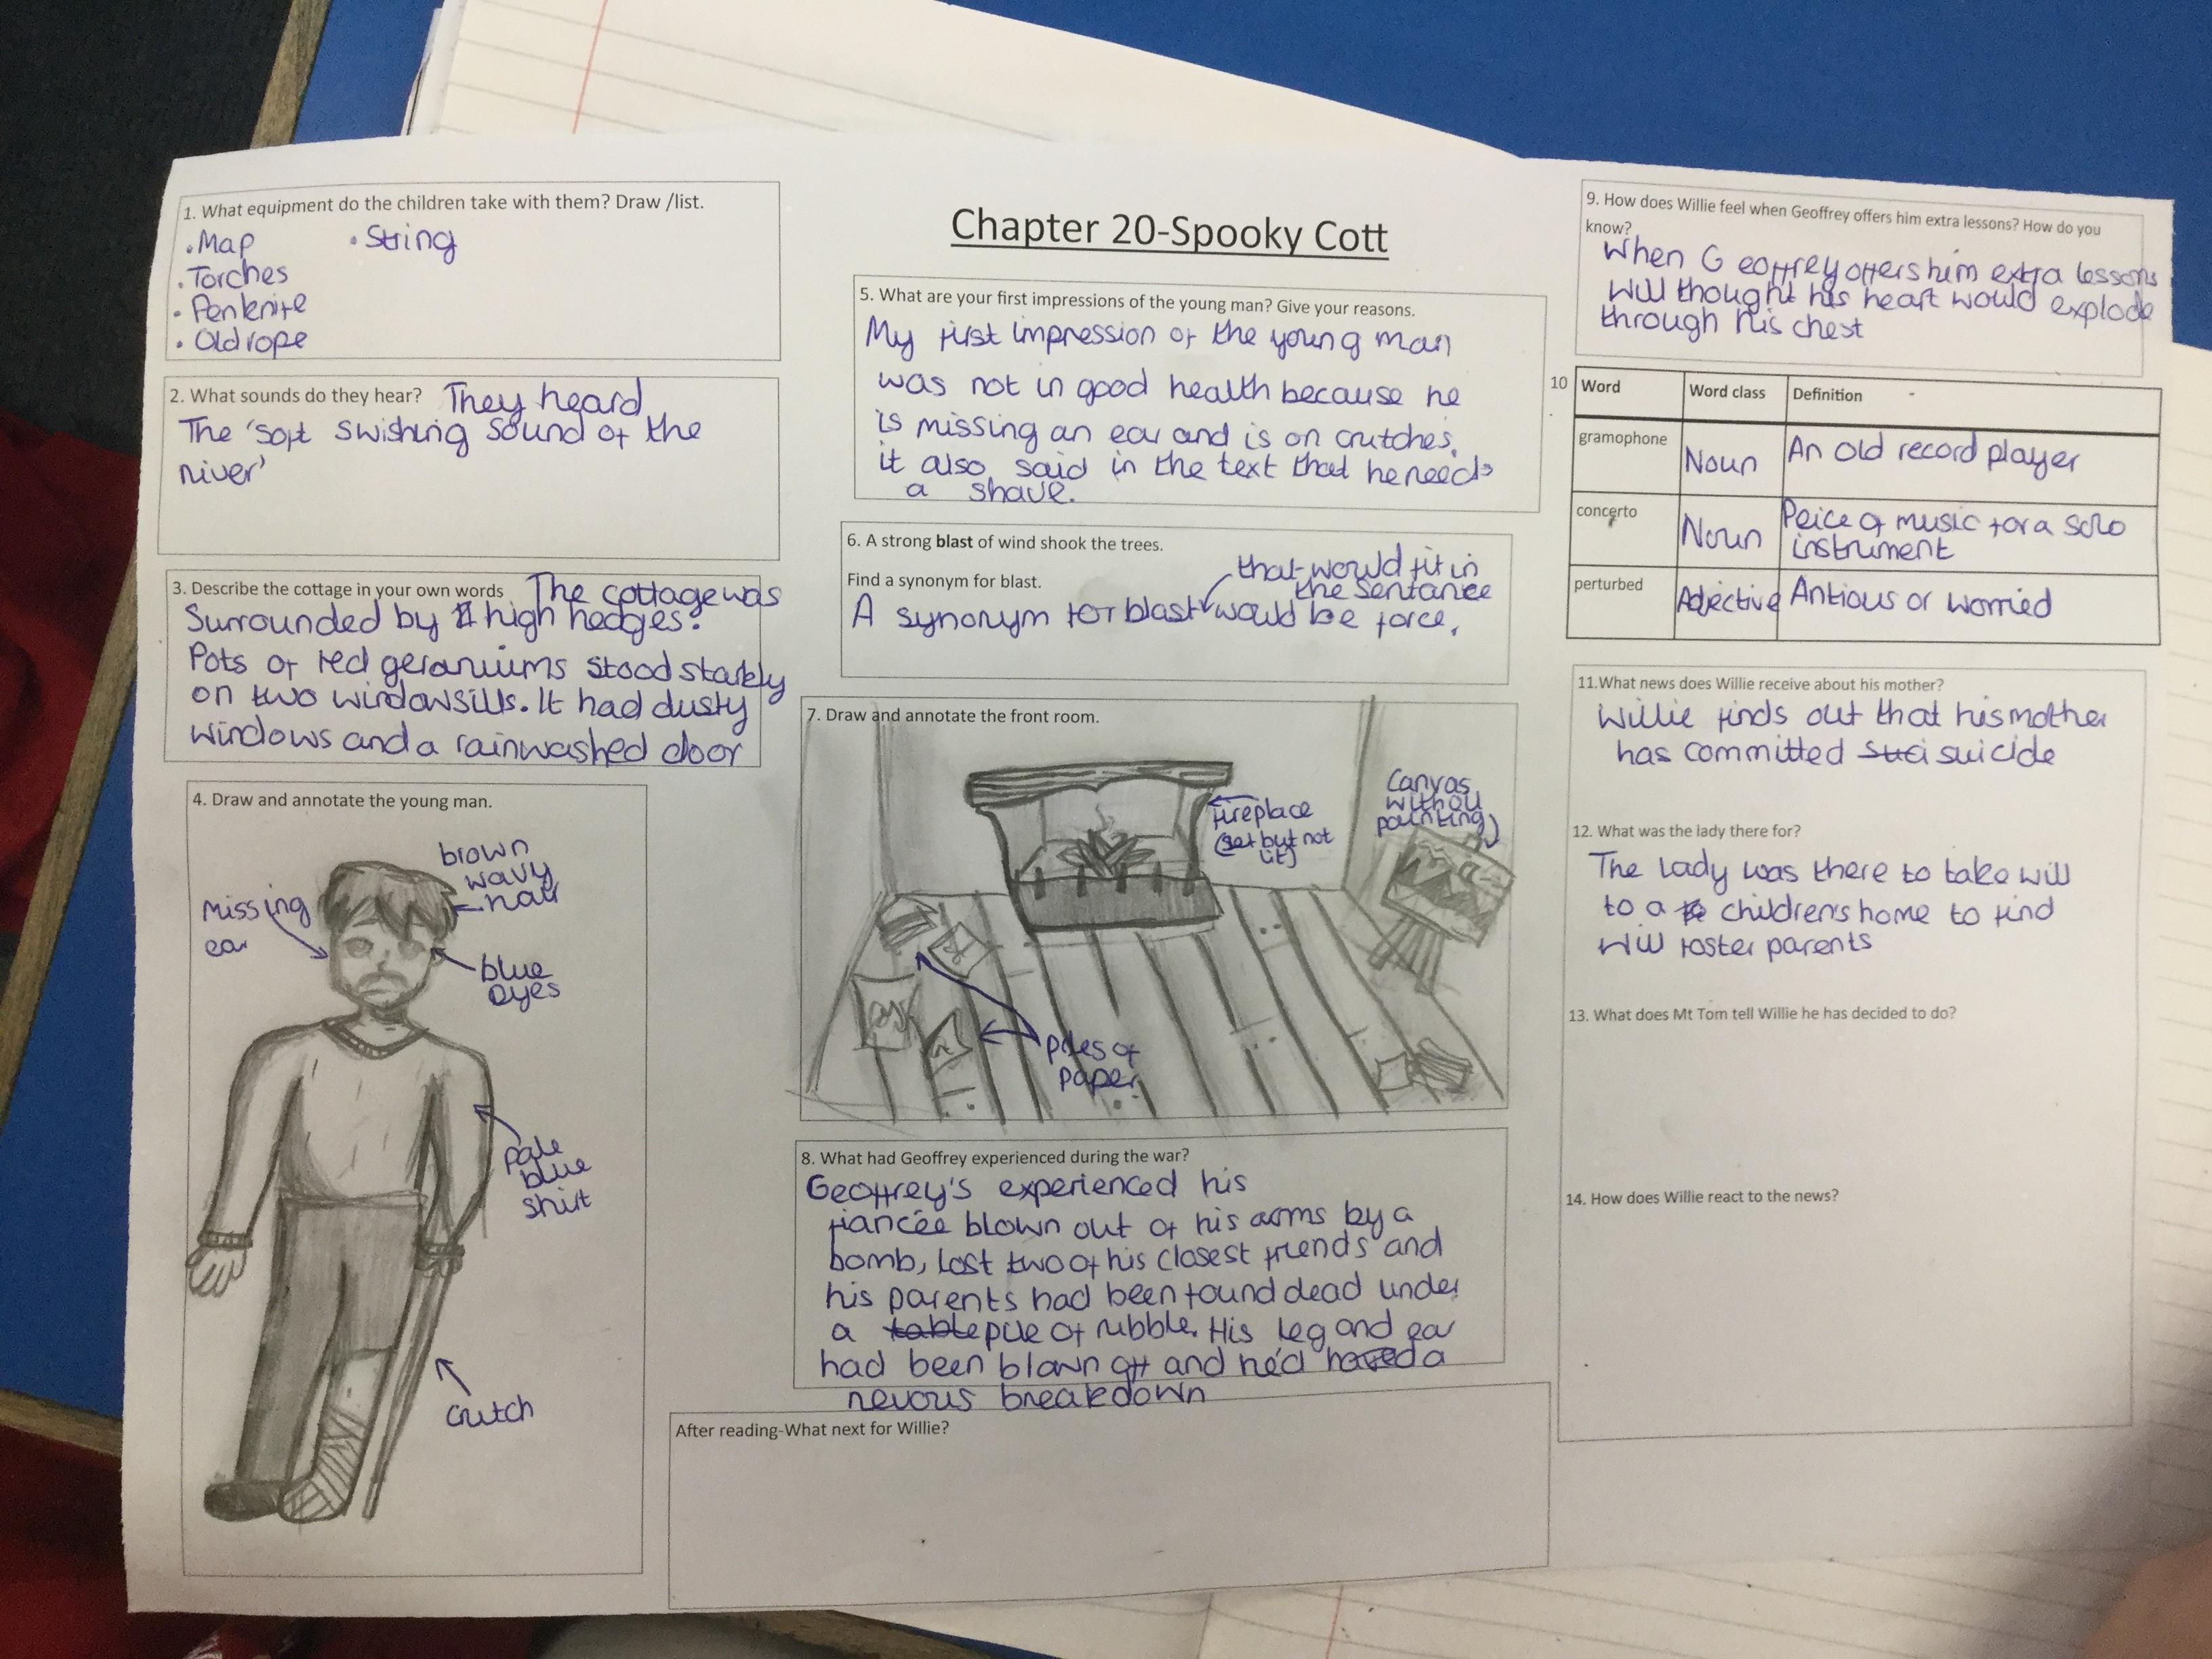 Chapter 20-Spooky Cott
1. What equipment do the children take with them? Draw /list.
• Map
• Torches
• Penknife
• Old rope
• String
2. What sounds do they hear? They heard
The 'soft swishing sound of the
river'
3. Describe the cottage in your own words The cottage was
surrounded by high hedges.
Pots of red geraniums stood starkly
on two windowsills. It had dusty
windows and a rainwashed door
4. Draw and annotate the young man.
brown
wavy
hair
Missing
ear
blue
eyes
pale
blue
shirt
crutch
5. What are your first impressions of the young man? Give your reasons.
My first impression of the young man
was not in good health because he
is missing an ear and is on crutches.
it also said in the text that he needs
a shave.
6. A strong blast of wind shook the trees.
Find a synonym for blast.
that would fit in
the sentance
A synonym for blast would be force.
7. Draw and annotate the front room.
fireplace
(set but not
lit)
Canvas
without
painting
piles of
paper
8. What had Geoffrey experienced during the war?
Geoffrey's experienced his
fiancée blown out of his arms by a
bomb, lost two of his closest friends and
his parents had been found dead under
a table pile of rubble. His leg and ear
had been blown off and he'd had a
nevous breakdown
After reading-What next for Willie?
9. How does Willie feel when Geoffrey offers him extra lessons? How do you
know?
When Geoffrey offers him extra lessons
Will thought his heart would explode
through his chest
10 Word Word class Definition
gramophone Noun An old record player
concerto Noun Peice of music for a solo
instrument
perturbed Adjective Antious or worried
11.What news does Willie receive about his mother?
Willie finds out that his mother
has committed suci suicide
12. What was the lady there for?
The lady was there to take will
to a children's home to find
Will foster parents
13. What does Mt Tom tell Willie he has decided to do?
14. How does Willie react to the news?